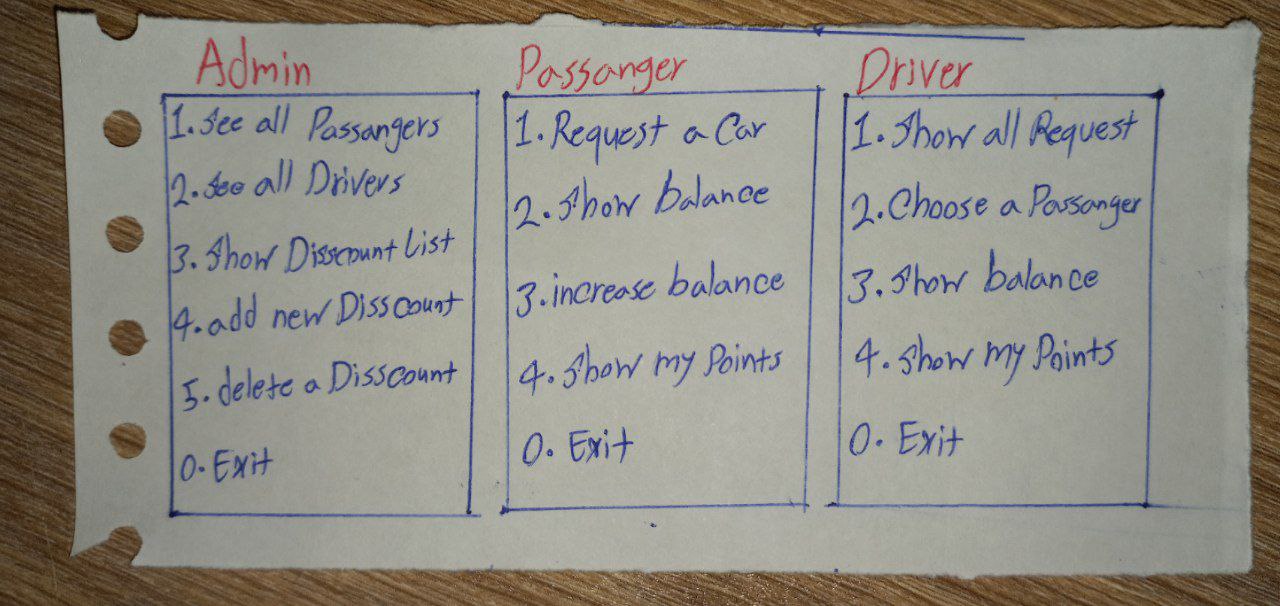 Admin
1. see all Passangers
2. see all Drivers
3. Show Disscount List
4. add new Disscount
5. delete a Disscount
0. Exit
Passanger
1. Request a Car
2. Show balance
3. increase balance
4. Show my Points
0. Exit
Driver
1. Show all Request
2. Choose a Passanger
3. Show balance
4. Show my Points
0. Exit